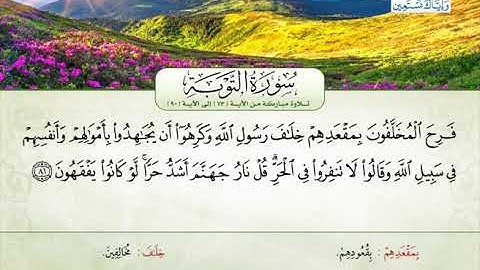 وَإِيَّاكَ نَسْتَعِينُ
سُورَةُ التَّوْبَةِ
تلاوة مباركة من الآية (٧٣) إلى الآية (٩٠)
فَرِحَ الْمُخَلَّفُونَ بِمَقْعَدِهِمْ خِلَٰفَ رَسُولِ اللَّهِ وَكَرِهُوٓا۟ أَن يُجَٰهِدُوا۟ بِأَمْوَٰلِهِمْ وَأَنفُسِهِمْ
فِي سَبِيلِ اللَّهِ وَقَالُوا۟ لَا تَنفِرُوا۟ فِي الْحَرِّ ۗ قُلْ نَارُ جَهَنَّمَ أَشَدُّ حَرًّا ۚ لَّوْ كَانُوا۟ يَفْقَهُونَ ٨١
بِمَقْعَدِهِمْ : بِقُعُودِهِمْ. خِلَٰفَ : مُخَالِفِينَ.